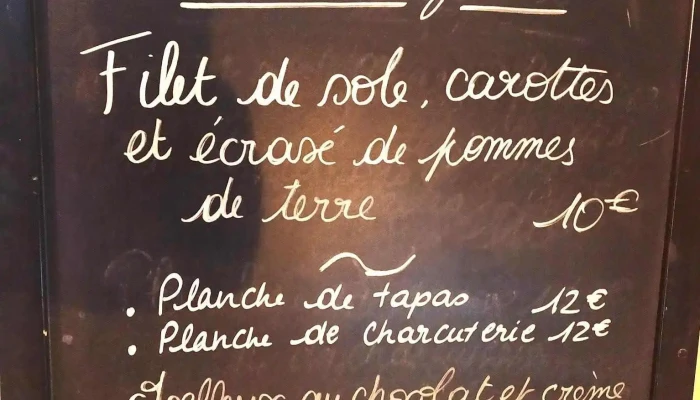 Filet de sole, carottes
et écrasé de pommes
de terre 10€
• Planche de tapas 12€
• Planche de charcuterie 12€
au chocolat et crème